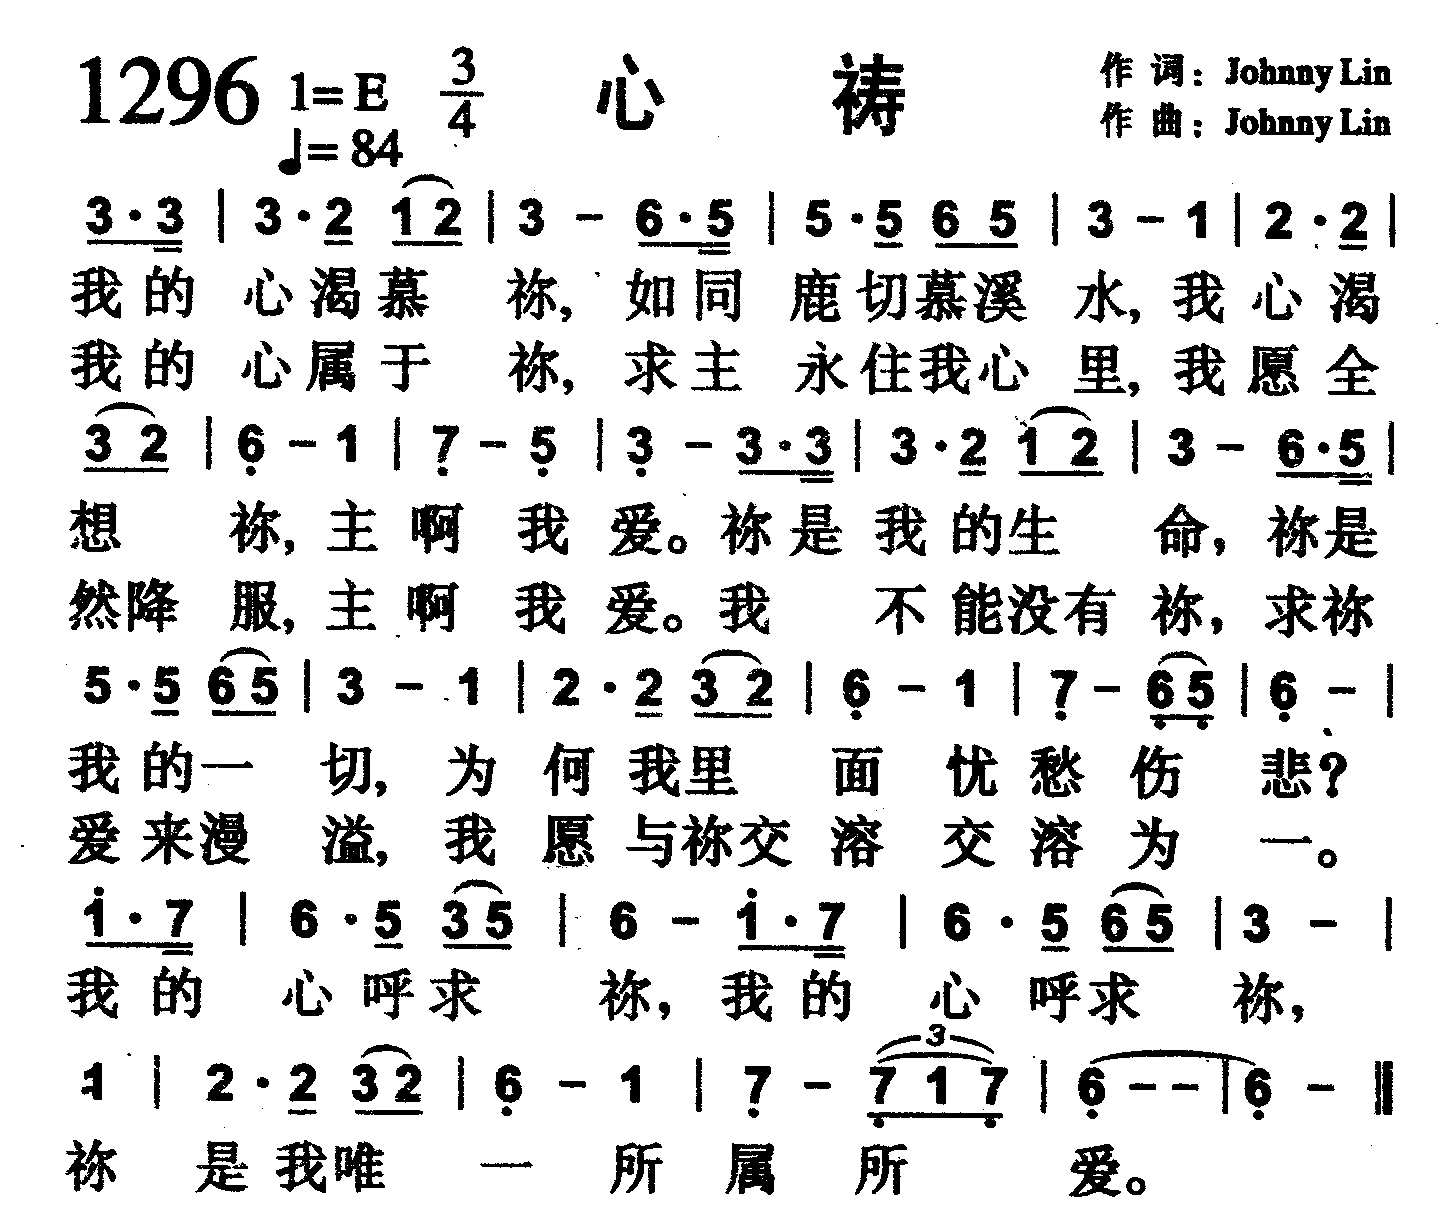 1296 1=E 3/4 心 祷 作 词：Johnny Lin
♩=84 作 曲：Johnny Lin
3·3 | 3·2 1 2 | 3 - 6·5 | 5·5 6 5 | 3 - 1 | 2·2 |
我的 心渴慕 祢，如同 鹿切慕溪 水，我心渴
我的 心属于 祢，求主 永住我心 里，我愿全
3 2 | 6̣ - 1 | 7̣ - 5̣ | 3̣ - 3·3 | 3·2 1 2 | 3 - 6·5 |
想 祢，主啊 我 爱。祢是 我的生 命，祢是
然降 服，主啊 我 爱。我 不能没有 祢，求祢
5·5 6 5 | 3 - 1 | 2·2 3 2 | 6̣ - 1 | 7̣ - 6̣ 5̣ | 6̣ - |
我的一 切，为 何我里 面 忧愁伤 悲？
爱来漫 溢，我 愿与祢交 溶 交溶为 一。
1̇·7 | 6·5 3 5 | 6 - 1̇·7 | 6·5 6 5 | 3 - |
我的 心呼求 祢，我的 心 呼求 祢，
1 | 2·2 3 2 | 6̣ - 1 | 7̣ - 3 7̣ 1 7̣ | 6̣ - - | 6̣ - ‖
祢 是我唯 一 所 属 所 爱。